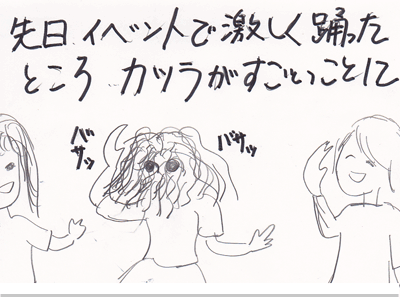 先日 イベントで激しく踊った
ところ カツラがすごいことに
バサッ
バサッ